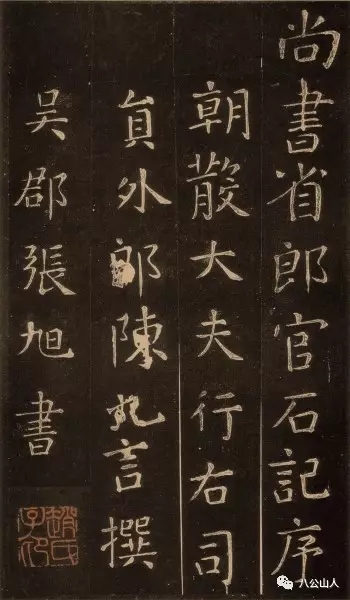 尚書省郎官石記序
朝散大夫行右司
貟外郎陳九言撰
吳郡張旭書
趙氏子印
八公山人